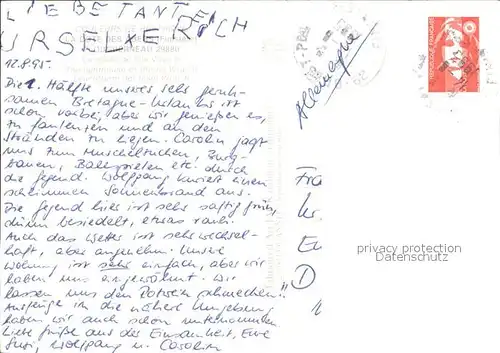 LIEBE TANTE
URSEL X ERICH
12.8.95.
Die 1. Hälfte unseres sehr geruh-
samen Bretagne-Urlaubs ist
schon vorbei, aber wir genießen es,
zu faulenzen und an den
Stränden zu liegen. Carolin jagt
uns zum Muscheltauchen, Burg-
bauen, Ballspielen etc. durch
die Gegend. Wolfgang kuriert einen
schlimmen Sonnenbrand aus.
Die Gegend hier ist sehr saftig grün,
dünn besiedelt, etwas rauh.
Auch das Wetter ist sehr wechsel-
haft, aber angenehm. Unsere
Wohnung ist sehr einfach, aber wir
haben uns eingewöhnt. Wir
lassen uns den Rotwein schmecken!!
Ausflüge in die nähere Umgebung
haben wir auch schon unternommen.
Liebe Grüße aus der Einsamkeit, Eure
Susi, Wolfgang u. Carolin
Allemagne
Fra
D
privacy protection
Oldthing.com